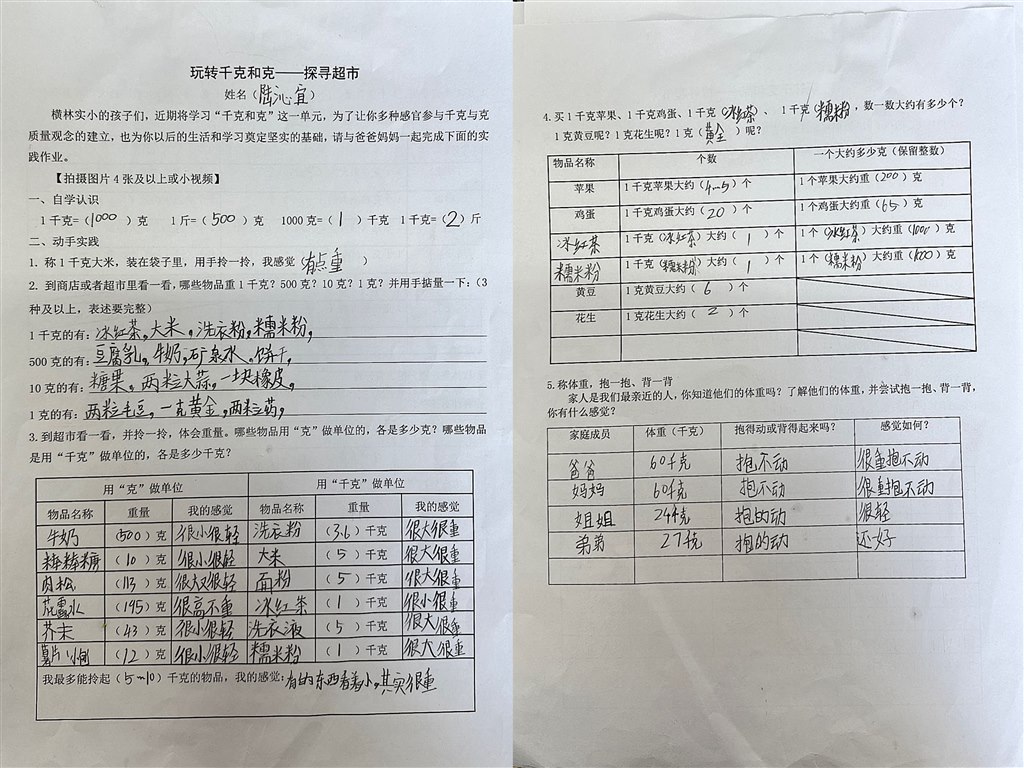 玩转千克和克——探寻超市
姓名（陆沁宜）
横林实小的孩子们，近期将学习“千克和克”这一单元，为了让你多种感官参与千克与克
质量观念的建立，也为你以后的生活和学习奠定坚实的基础，请与爸爸妈妈一起完成下面的实
践作业。
【拍摄图片 4 张及以上或小视频】
一、自学认识
1 千克=（1000）克 1 斤=（500）克 1000 克=（1）千克 1 千克=（2）斤
二、动手实践
1. 称 1 千克大米，装在袋子里，用手拎一拎，我感觉（有点重）
2. 到商店或者超市里看一看，哪些物品重 1 千克？500 克？10 克？1 克？并用手掂量一下：（3
种及以上，表述要完整）
1 千克的有：冰红茶，大米，洗衣粉，糯米粉，
500 克的有：豆腐乳，牛奶，矿泉水，饼干，
10 克的有：糖果，两粒大蒜，一块橡皮，
1 克的有：两粒毛豆，一克黄金，两粒药，
3. 到超市看一看，并拎一拎，体会重量。哪些物品用“克”做单位的，各是多少克？哪些物品
是用“千克”做单位的，各是多少千克？
用“克”做单位 用“千克”做单位
物品名称 重量 我的感觉 物品名称 重量 我的感觉
牛奶 （500）克 很小很轻 洗衣粉 （3.6）千克 很大很重
棒棒糖 （10）克 很小很轻 大米 （5）千克 很大很重
肉松 （113）克 很大又很轻 面粉 （5）千克 很大很重
花露水 （195）克 很高不重 冰红茶 （1）千克 很小很重
芥末 （43）克 很小很轻 洗衣液 （5）千克 很大很重
薯片 （12）克 很小很轻 糯米粉 （1）千克 很大很重
我最多能拎起（5~10）千克的物品，我的感觉：有的东西看着小，其实很重
4. 买 1 千克苹果、1 千克鸡蛋、1 千克（冰红茶）、 1 千克（糯米粉），数一数大约有多少个？
1 克黄豆呢？1 克花生呢？1 克（黄金）呢？
物品名称 个数 一个大约多少克（保留整数）
苹果 1 千克苹果大约（4~5）个 1 个苹果大约重（200）克
鸡蛋 1 千克鸡蛋大约（20）个 1 个鸡蛋大约重（65）克
冰红茶 1 千克（冰红茶）大约（1）个 1 个（冰红茶）大约重（1000）克
糯米粉 1 千克（糯米粉）大约（1）个 1 个（糯米粉）大约重（1000）克
黄豆 1 克黄豆大约（6）个
花生 1 克花生大约（2）个
5. 称体重，抱一抱、背一背
家人是我们最亲近的人，你知道他们的体重吗？了解他们的体重，并尝试抱一抱、背一背，
你有什么感觉？
家庭成员 体重（千克） 抱得动或背得起来吗？ 感觉如何？
爸爸 60千克 抱不动 很重抱不动
妈妈 60千克 抱不动 很重抱不动
姐姐 24千克 抱的动 很轻
弟弟 27千克 抱的动 还好